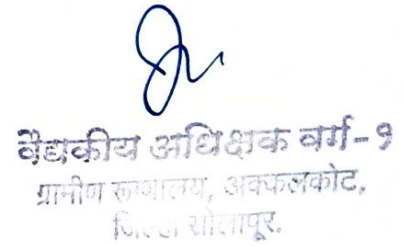 वैद्यकीय अधिक्षक वर्ग-१
ग्रामीण रुग्णालय, अक्कलकोट,
जिल्हा सोलापूर.